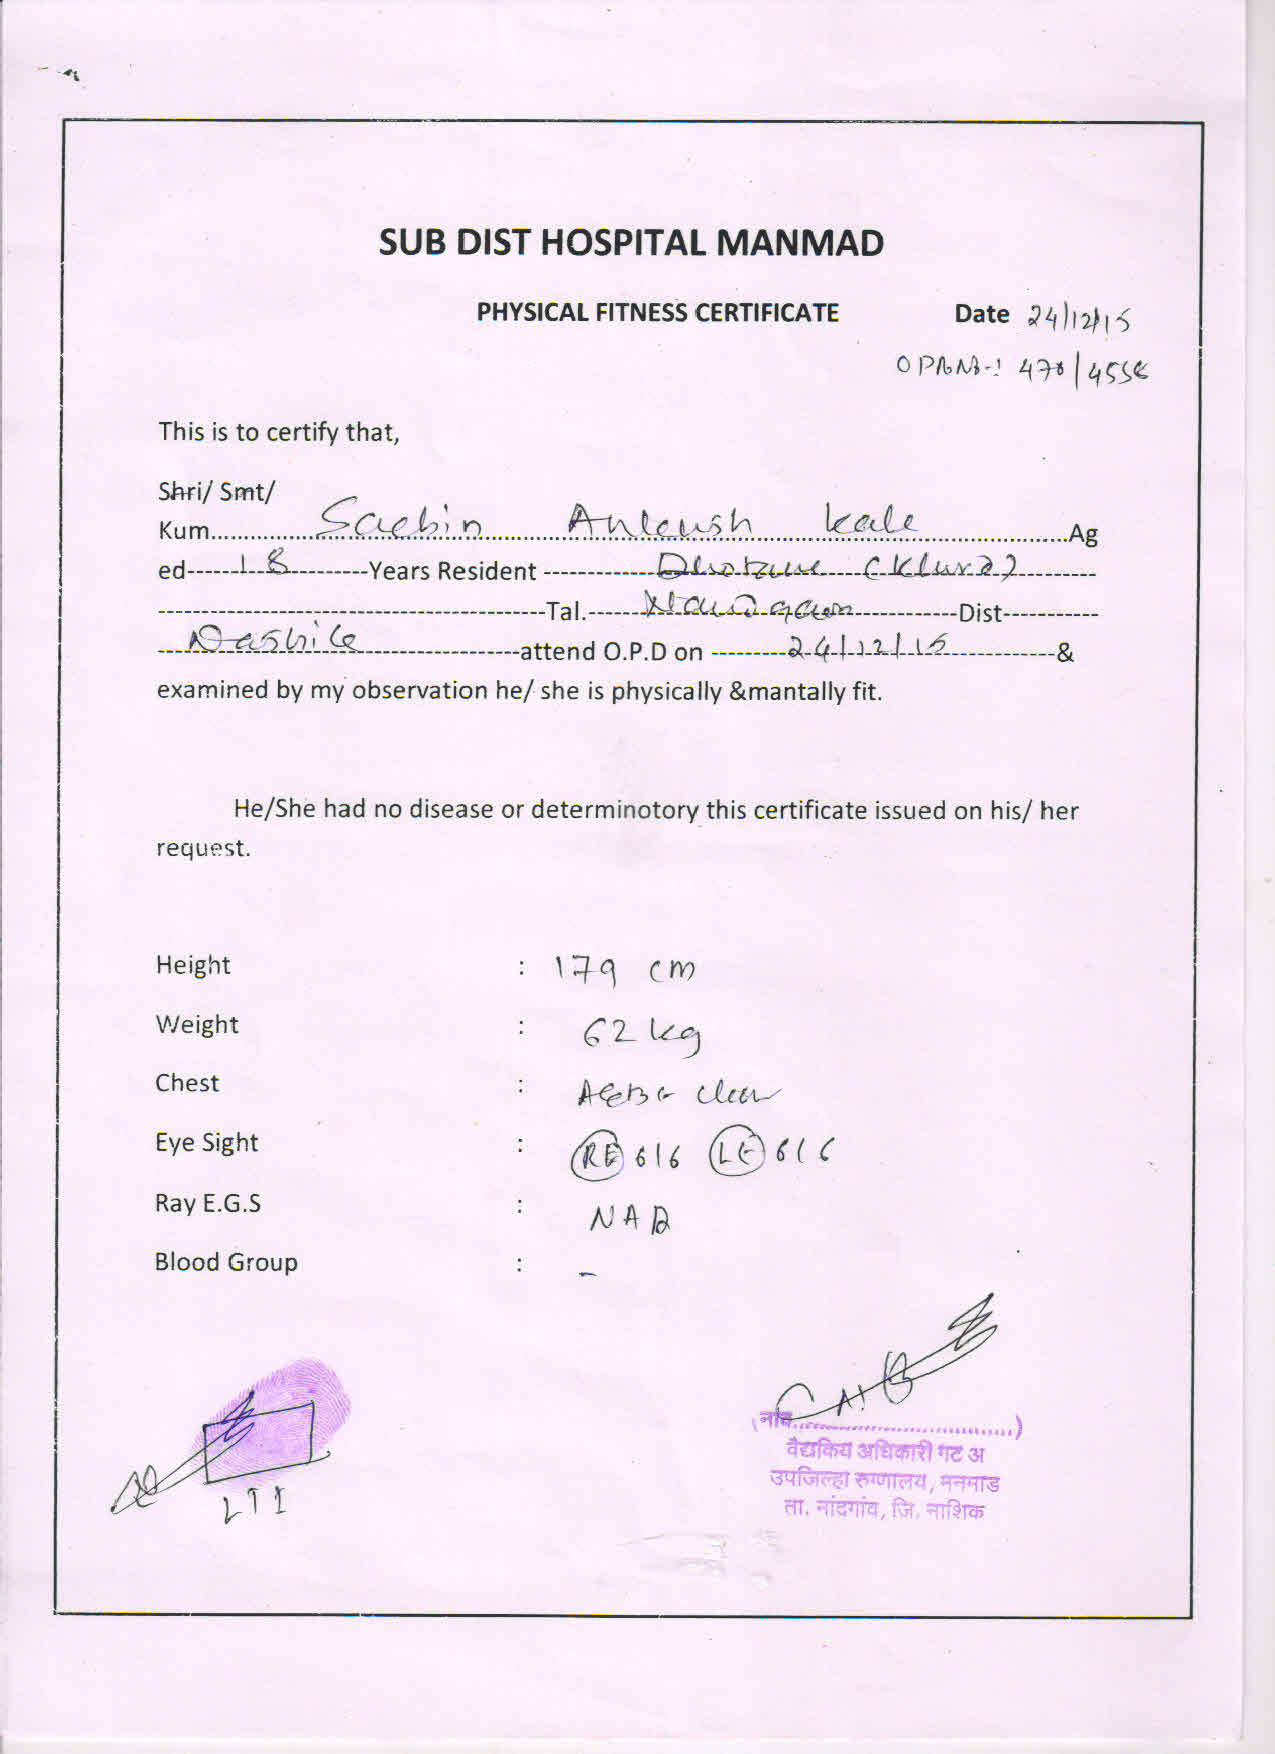 SUB DIST HOSPITAL MANMAD
PHYSICAL FITNESS CERTIFICATE Date 24/12/15
470/4558
This is to certify that,
Shri/ Smt/
Kum.......Sachin Ankush Kale.......Ag
ed------18---------Years Resident -------------Dhotane (Khurd)---------
---------------------------------------------Tal.------Nandgaon------------Dist-----------
---Nashik-------------------attend O.P.D on ---------24/12/15-------------&
examined by my observation he/ she is physically &mantally fit.
He/She had no disease or determinotory this certificate issued on his/ her
request.
Height : 179 cm
Weight : 62 kg
Chest : clear
Eye Sight : RE 6/6 LE 6/6
Ray E.G.S : NAD
Blood Group : -
LTI
(नांव..............................)
वैद्यकिय अधिकारी गट अ
उपजिल्हा रुग्णालय, मनमाड
ता. नांदगांव, जि. नाशिक